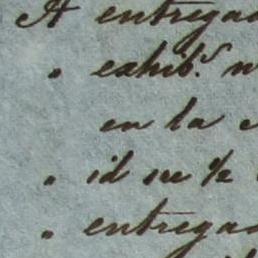 A entregad
" exhib.^r n
en la c
" id su %
" entregad